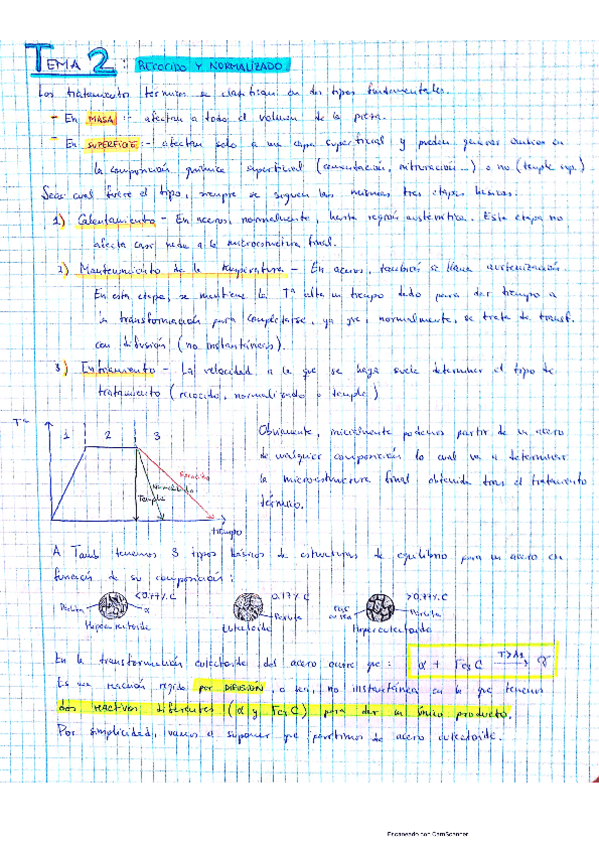 TEMA 2: RECOCIDO Y NORMALIZADO
Los tratamientos térmicos se clasifican en dos tipos fundamentales.
- En MASA :- afectan a todo el volumen de la pieza.
- En SUPERFICIE :- afectan solo a una capa superficial y pueden generar cambios en
la composición química superficial (cementación, nitruración...) o no (temple sup.)
Sea cual fuere el tipo, siempre se siguen las mismas tres etapas básicas:
1) Calentamiento - En aceros, normalmente, hasta región austenítica. Esta etapa no
afecta casi nada a la microestructura final.
2) Mantenimiento de la temperatura - En aceros, también se llama austenización
En esta etapa, se mantiene la Tª alta un tiempo dado para dar tiempo a
la transformación para completarse, ya que, normalmente, se trata de transf.
con difusión (no instantáneas).
3) Enfriamiento - La velocidad a la que se haga suele determinar el tipo de
tratamiento (recocido, normalizado o temple)
Tª
1 2 3
Normalizado
Temple
tiempo
Obviamente, inicialmente podemos partir de un acero
de cualquier composición lo cual va a determinar
la microestructura final obtenida tras el tratamiento
térmico.
A Tamb tenemos 3 tipos básicos de estructuras de equilibrio para un acero en
función de su composición:
<0.77% C
Perlita
α
Hipoeutectoide
0.77% C
Perlita
Eutectoide
>0.77% C
Perlita
Hipereutectoide
En la transformación eutectoide del acero ocurre que: α + Fe3C T>A1 → γ
Es una reacción regida por DIFUSIÓN, o sea, no instantánea en la que tenemos
dos reactivos diferentes (α y Fe3C) para dar un único producto.
Por simplicidad, vamos a suponer que partimos de acero eutectoide.
Escaneado con CamScanner